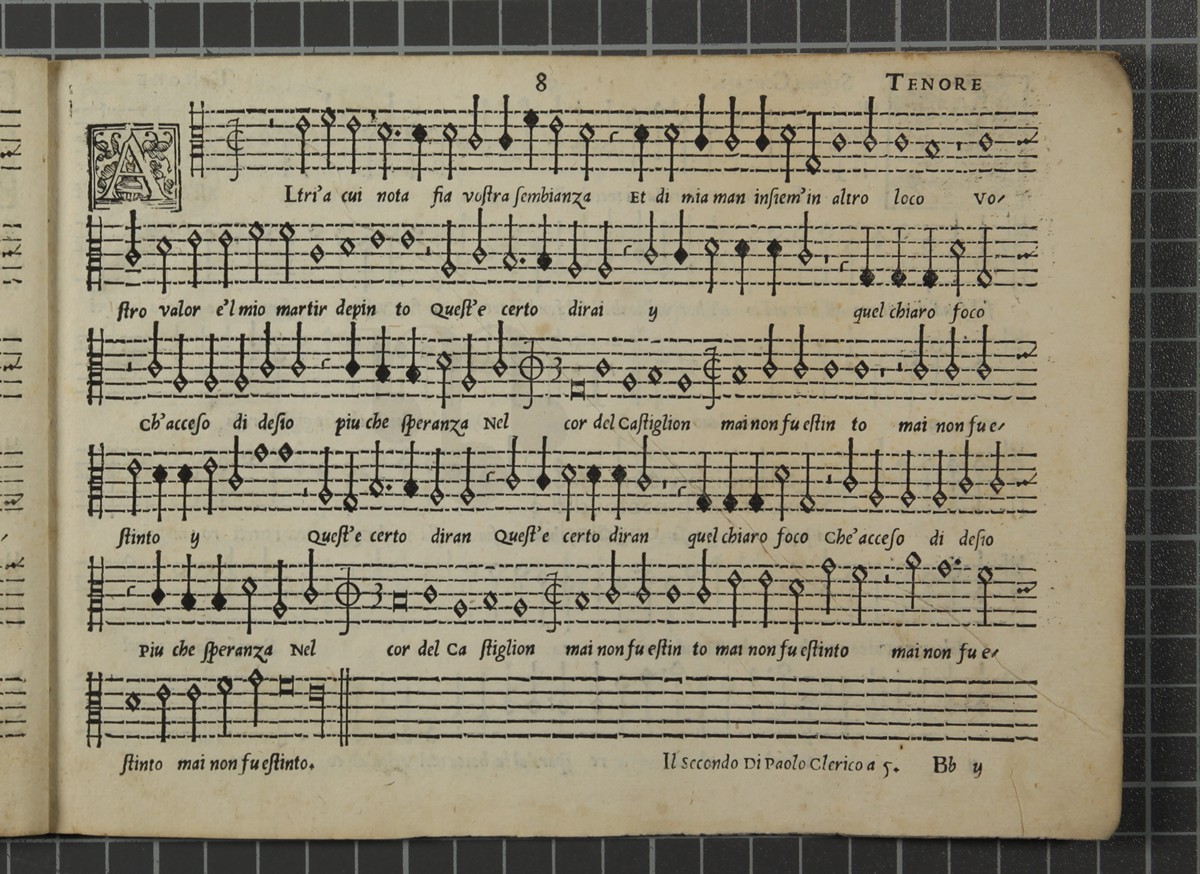 8 TENORE
ALtri'a cui nota fia vostra sembianza Et di mia man insiem'in altro loco Vo-
stro valor e'l mio martir depin to Quest'e certo dirai y quel chiaro foco
Ch'acceso di desio piu che speranza Nel cor del Castiglion mai non fu estin to mai non fu e-
stinto y Quest'e certo diran Quest'e certo diran quel chiaro foco Che'acceso di desio
Piu che speranza Nel cor del Ca stiglion mai non fu estin to mai non fu estinto mai non fu e-
stinto mai non fu estinto.
Il Secondo Di Paolo Clerico a 5. Bb y